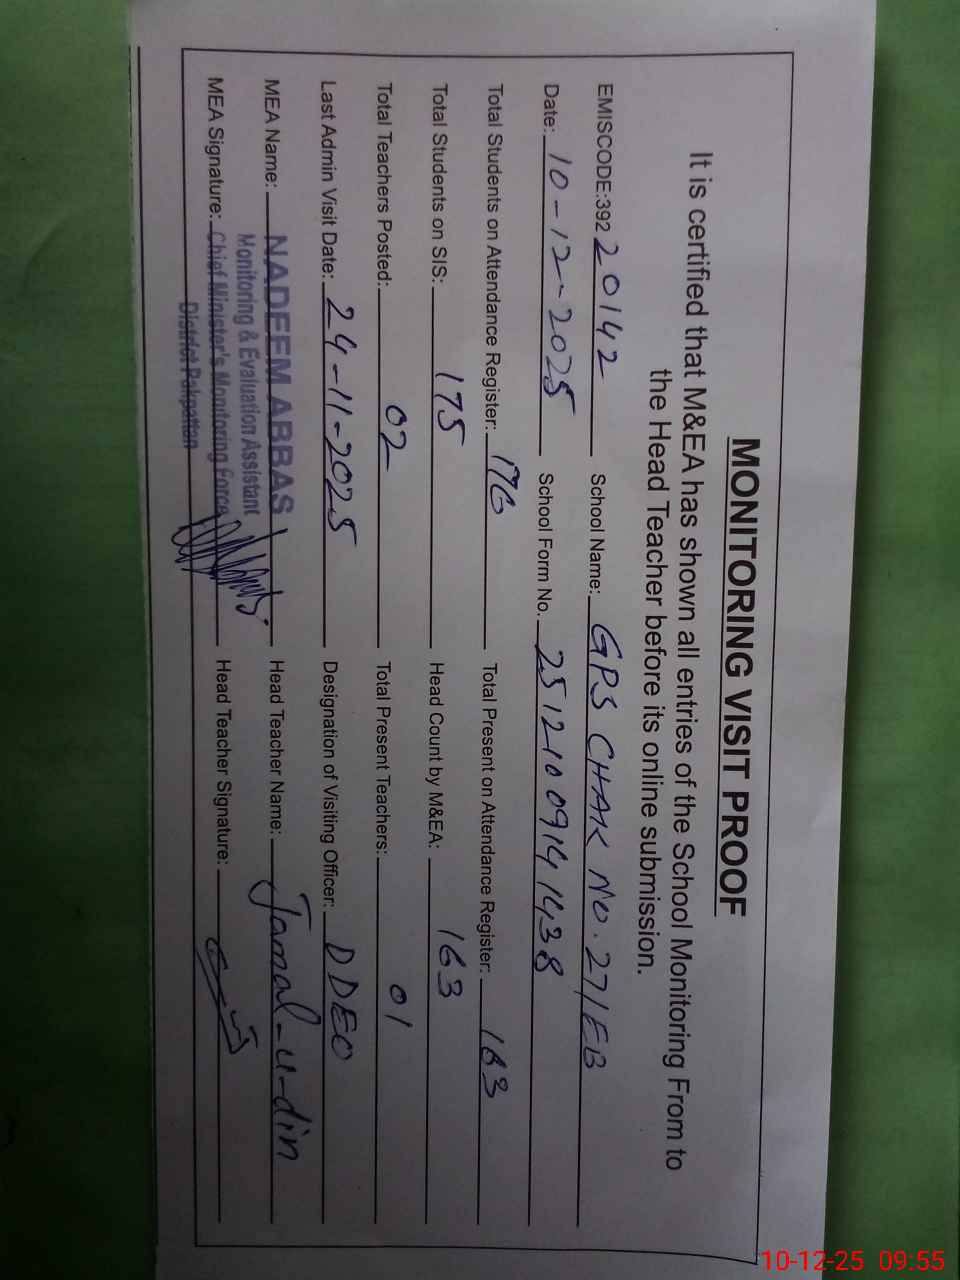 MONITORING VISIT PROOF
It is certified that M&EA has shown all entries of the School Monitoring From to
the Head Teacher before its online submission.
EMISCODE:392 20142 School Name: GPS CHAK NO. 27/EB
Date: 10-12-2025 School Form No. 25121009141438
Total Students on Attendance Register: 176 Total Present on Attendance Register: 163
Total Students on SIS: 175 Head Count by M&EA: 163
Total Teachers Posted: 02 Total Present Teachers: 01
Last Admin Visit Date: 24-11-2025 Designation of Visiting Officer: DDEO
MEA Name: NADEEM ABBAS Head Teacher Name: Jamal-u-din
Monitoring & Evaluation Assistant
MEA Signature: Chief Minister's Monitoring Force Head Teacher Signature:
District Pakpattan
10-12-25 09:55